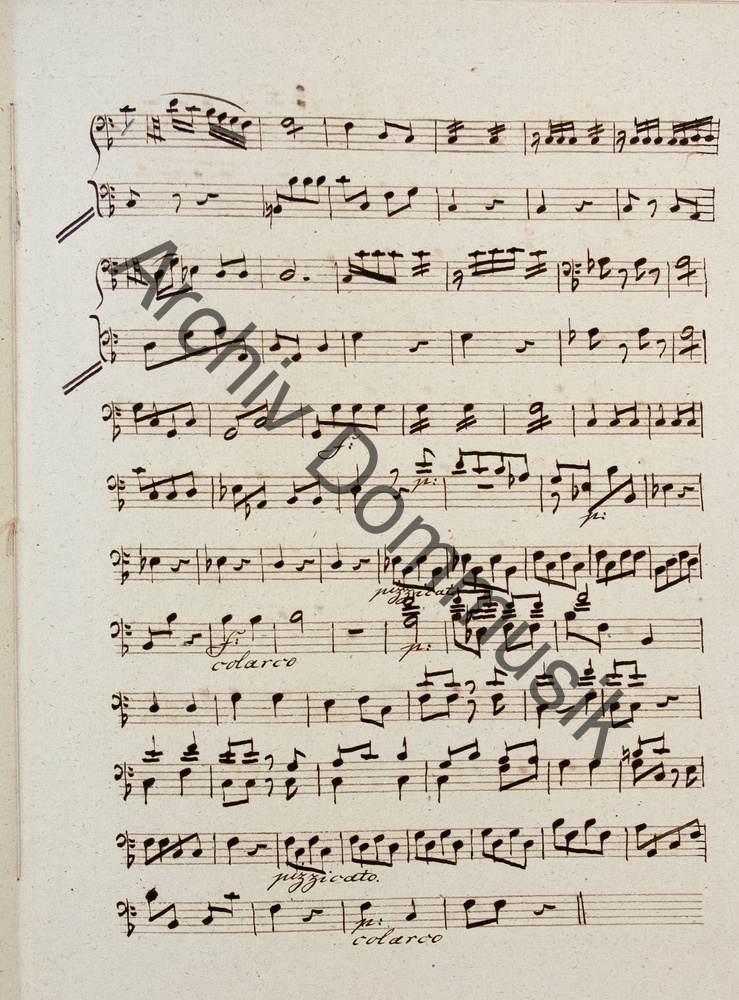 f:
p:
p:
pizzicato
f:
colarco
p:
pizzicato.
p:
colarco
Archiv Dommusik